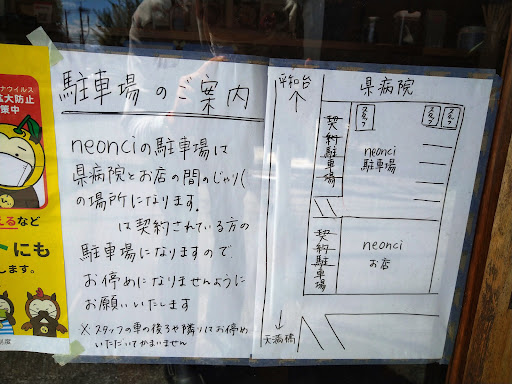 ナウイルス
拡大防止
策中
えるなど
にも
します。
駐車場のご案内
neonciの駐車場は
県病院とお店の間のじゃり(
の場所になります.
は契約されている方の
駐車場になりますので
お停めになりませんように
お願いいたします
※スタッフの車の後ろや隣りにお停め
いただいてかまいません
平和台
↑
県病院
契約駐車場
スタッフ
スタッフ
スタッフ
neonci
駐車場
契約駐車場
neonci
お店
↓
大満橋